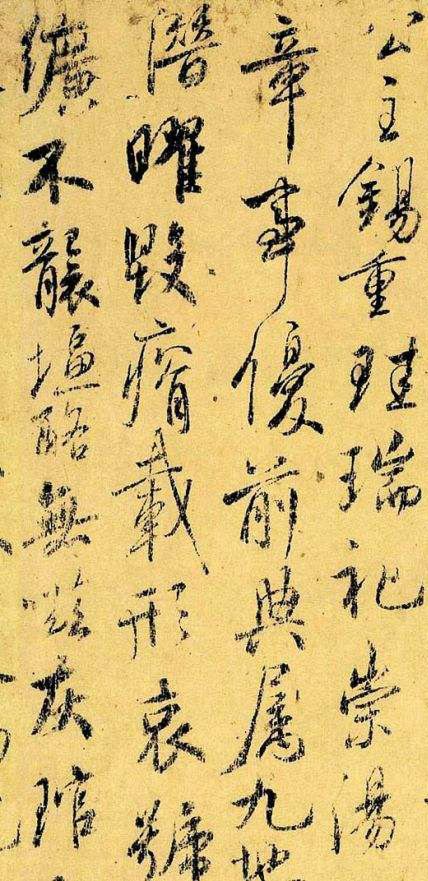 公主錫重珪瑞祀崇湯
章事優前典属九地
潛曜毀瘠載形哀號
纊不襲塩酪無嗞灰琯